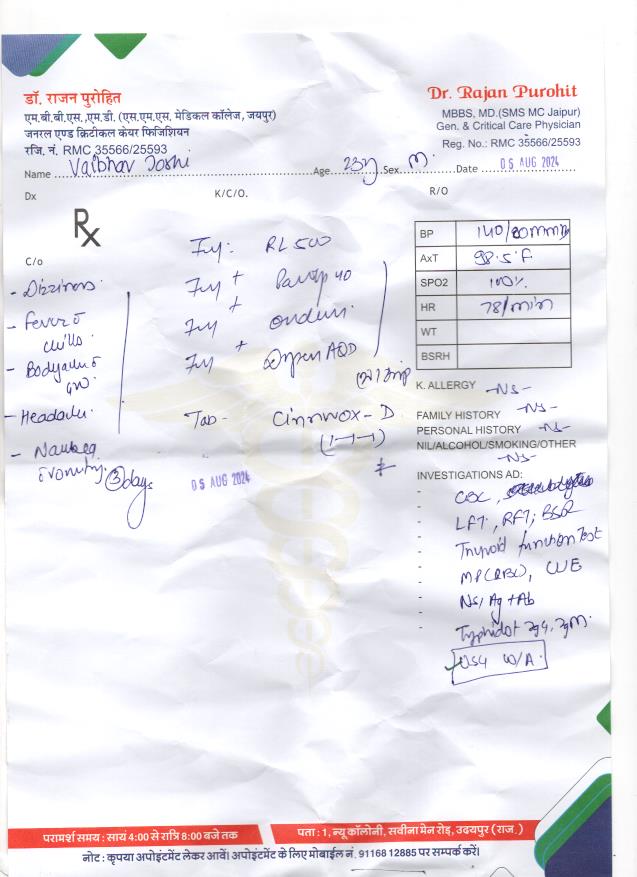 डॉ. राजन पुरोहित
एम.बी.बी.एस.,एम.डी. (एस.एम.एस. मेडिकल कॉलेज, जयपुर)
जनरल एण्ड क्रिटीकल केयर फिजिशियन
रजि. नं. RMC 35566/25593
Dr. Rajan Purohit
MBBS, MD.(SMS MC Jaipur)
Gen. & Critical Care Physician
Reg. No.: RMC 35566/25593
Name Vaibhav Joshi Age 23y Sex M Date 05 AUG 2024
Dx K/C/O. R/O
Rx
C/o
- Dizziness
- Fever c̄ chills
- Bodyache c̄
- Headache
- Nausea
c̄ vomiting
3 days
Inj: RL 500
+
Inj Pantop 40
+
Inj
+
Inj
Tab - Cinnwox-D
(1-1-1)
05 AUG 2024
BP 140/80mmHg
AxT 98.5°F
SPO2 100%
HR 78/min
WT
BSRH
K. ALLERGY -NS-
FAMILY HISTORY -NS-
PERSONAL HISTORY -NS-
NIL/ALCOHOL/SMOKING/OTHER
-NS-
INVESTIGATIONS AD:
- CBC,
- LFT, RFT, BSR
- Thyroid function Test
- MP(RBC), CUE
- NS1 Ag + Ab
- Typhidot IgG, IgM
USG W/A
परामर्श समय : सायं 4:00 से रात्रि 8:00 बजे तक
पता : 1, न्यू कॉलोनी, सवीना मेन रोड़, उदयपुर (राज.)
नोट : कृपया अपोइंटमेंट लेकर आवें। अपोइंटमेंट के लिए मोबाईल नं. 91168 12885 पर सम्पर्क करें।